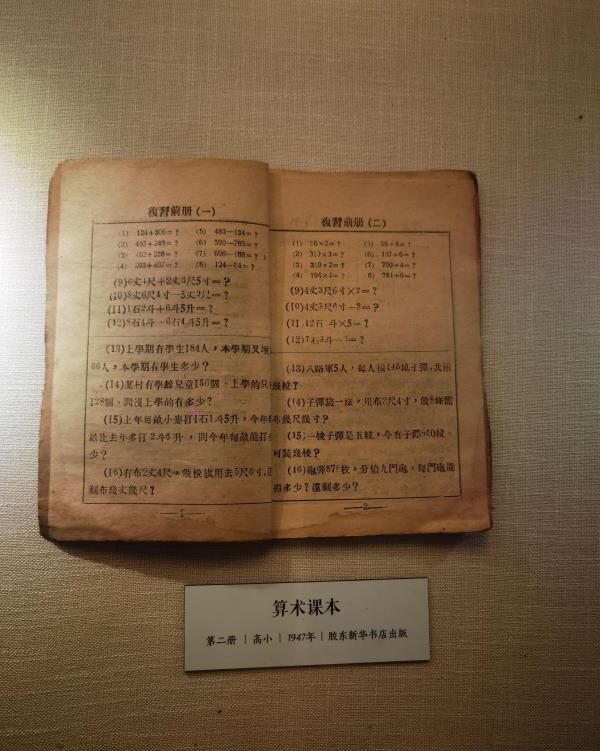 復習前册(一)
(1) 124+306=? (5) 483-134=?
(2) 455+248=? (6) 500-285=?
(3) 462+228=? (7) 606-188=?
(4) 293+407=? (8) 124-
(9)6丈4尺+2丈3尺5寸=?
(10)8丈6尺4寸-5丈
(11)1石2斗+6斗5升=?
(12)8石4斗-6石4斗5升=?
(13)上學期有學生184人,本學期又增
66人,本學期有學生多少?
(14)某村有學齡兒童156個,上學的只
128個,問沒上學的有多少?
(15)上年每畝小麥打1石1斗5升,今年
畝比去年多打2斗6升,問今年每畝能打
少?
(16)有布2丈4尺,做被欲用去5尺6寸,
剩布幾丈幾尺?
1
復習前册(二)
(1) 86×2=?
(2) 313×3=? (6) 137÷6=?
(3) 310×2=? (7) 700÷4=?
(4) 196×2=? 8) 781÷6=?
(9)4丈3尺6寸×2=?
(10)4丈3尺6寸÷3=?
(11)12石 斗×5=?
(12)7石3斗
(13)八路軍5人,每人揹145粒子彈,共揹
幾粒?
(14)子彈袋一條,用布3尺4寸,做8條需
布幾尺幾寸?
(15)一梭子彈是五粒,今有子彈 粒,
可裝幾梭?
(16)砲彈878枚,分給九門砲,每門砲能
得多少?還剩多少?
2
算术课本
第二册 | 高小 | 1947年 | 胶东新华书店出版